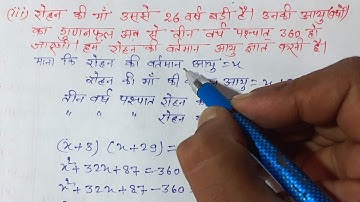 (iii) रोहन की माँ उससे 26 वर्ष बड़ी है। उनकी आयु (वर्षों)
का गुणनफल अब से तीन वर्ष पश्चात 360 हो
जाएगी। हमें रोहन की वर्तमान आयु ज्ञात करनी है।
माना कि रोहन की वर्तमान आयु = x
रोहन की माँ की आयु =
तीन वर्ष पश्चात रोहन
रोहन
(x+3) (x+29) =
x²+32x+87 = 360
x²+32x+87-360